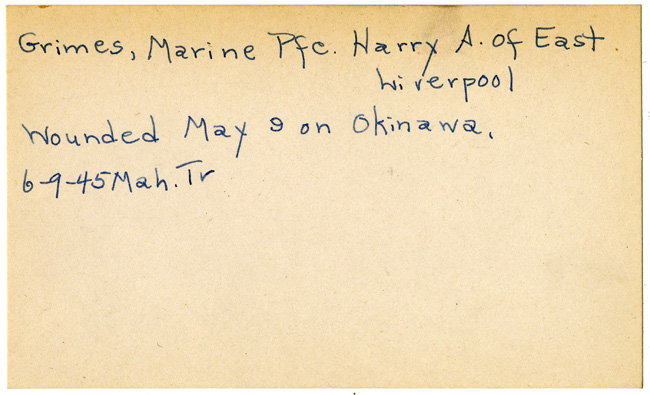 Grimes, Marine Pfc. Harry A. of East
Liverpool
Wounded May 9 on Okinawa.
6-9-45 Mah. Tr